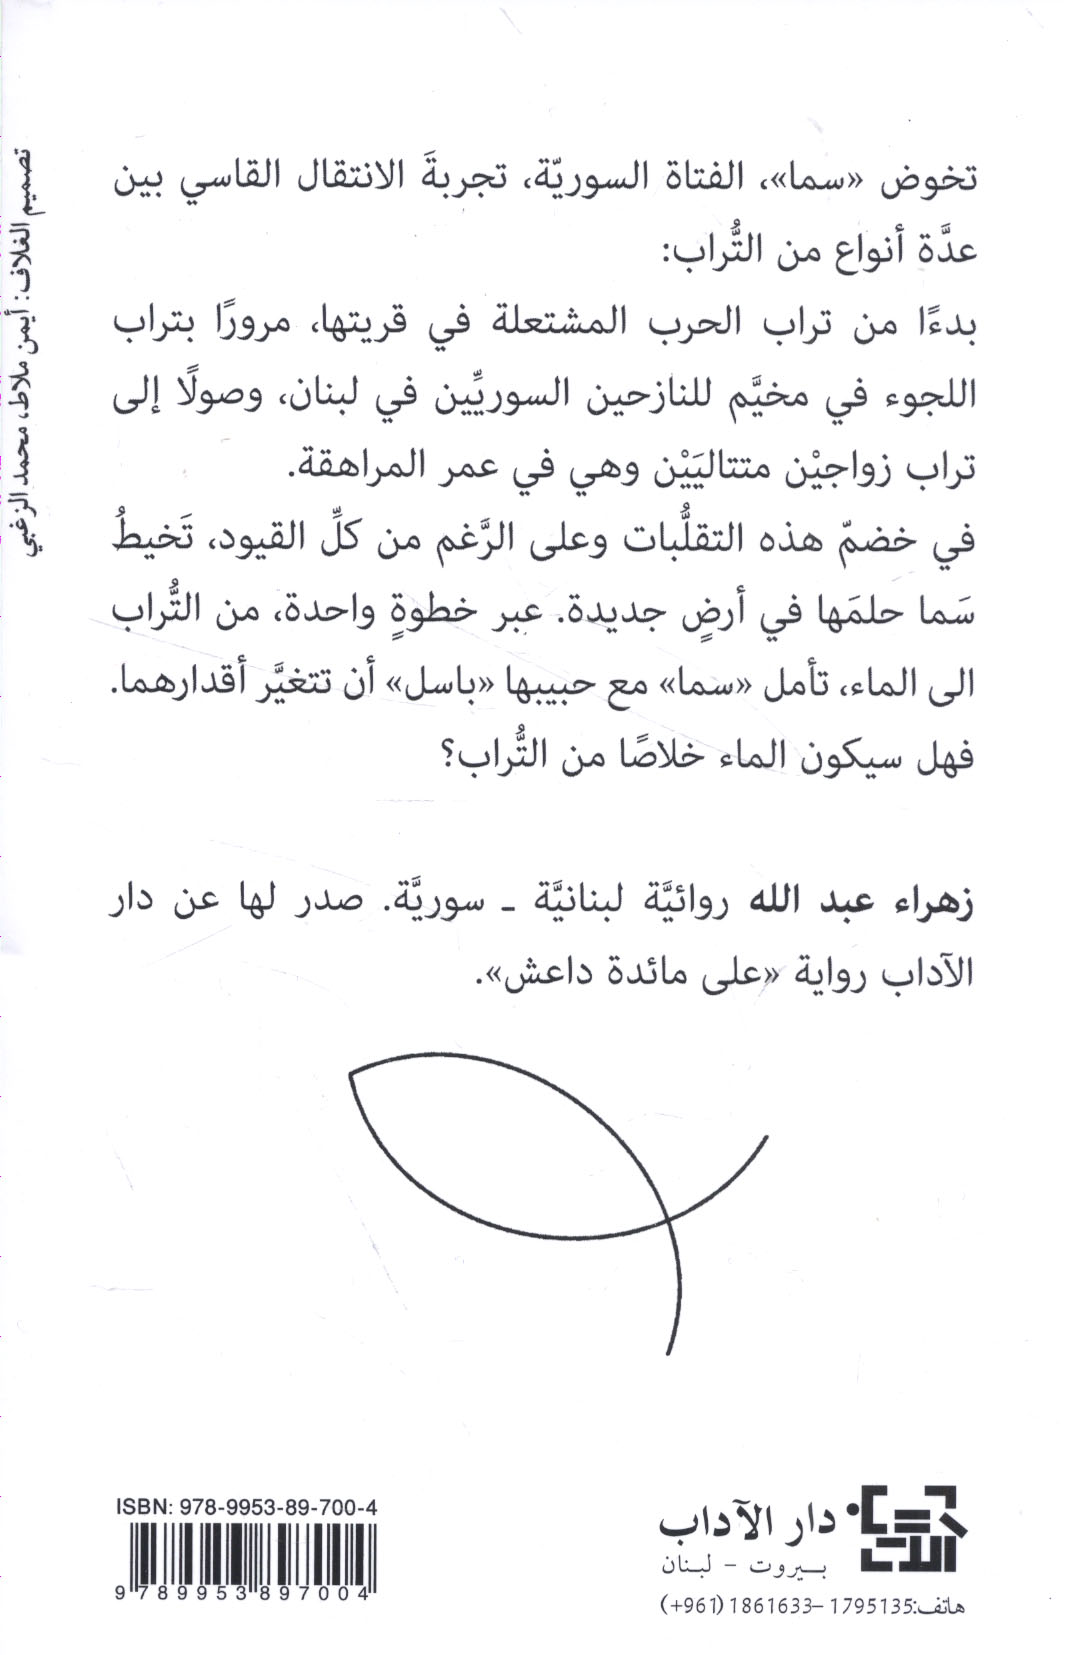 تخوض «سما»، الفتاة السوريّة، تجربةَ الانتقال القاسي بين
عدَّة أنواع من التُّراب:
بدءًا من تراب الحرب المشتعلة في قريتها، مرورًا بتراب
اللجوء في مخيَّم للنازحين السوريِّين في لبنان، وصولًا إلى
تراب زواجيْن متتاليَيْن وهي في عمر المراهقة.
في خضمّ هذه التقلُّبات وعلى الرَّغم من كلِّ القيود، تَخيطُ
سَما حلمَها في أرضٍ جديدة. عبر خطوةٍ واحدة، من التُّراب
الى الماء، تأمل «سما» مع حبيبها «باسل» أن تتغيَّر أقدارهما.
فهل سيكون الماء خلاصًا من التُّراب؟
زهراء عبد الله روائيَّة لبنانيَّة ـ سوريَّة. صدر لها عن دار
الآداب رواية «على مائدة داعش».
تصميم الغلاف: أيمن ملاط، محمد الزغبي
دار الآداب
بيروت - لبنان
هاتف:1795135 –1861633 (961+)
ISBN: 978-9953-89-700-4
9 789953 897004